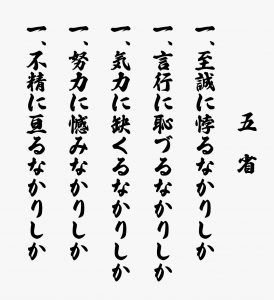 五省
一、至誠に悖るなかりしか
一、言行に恥づるなかりしか
一、気力に缺くるなかりしか
一、努力に憾みなかりしか
一、不精に亘るなかりしか